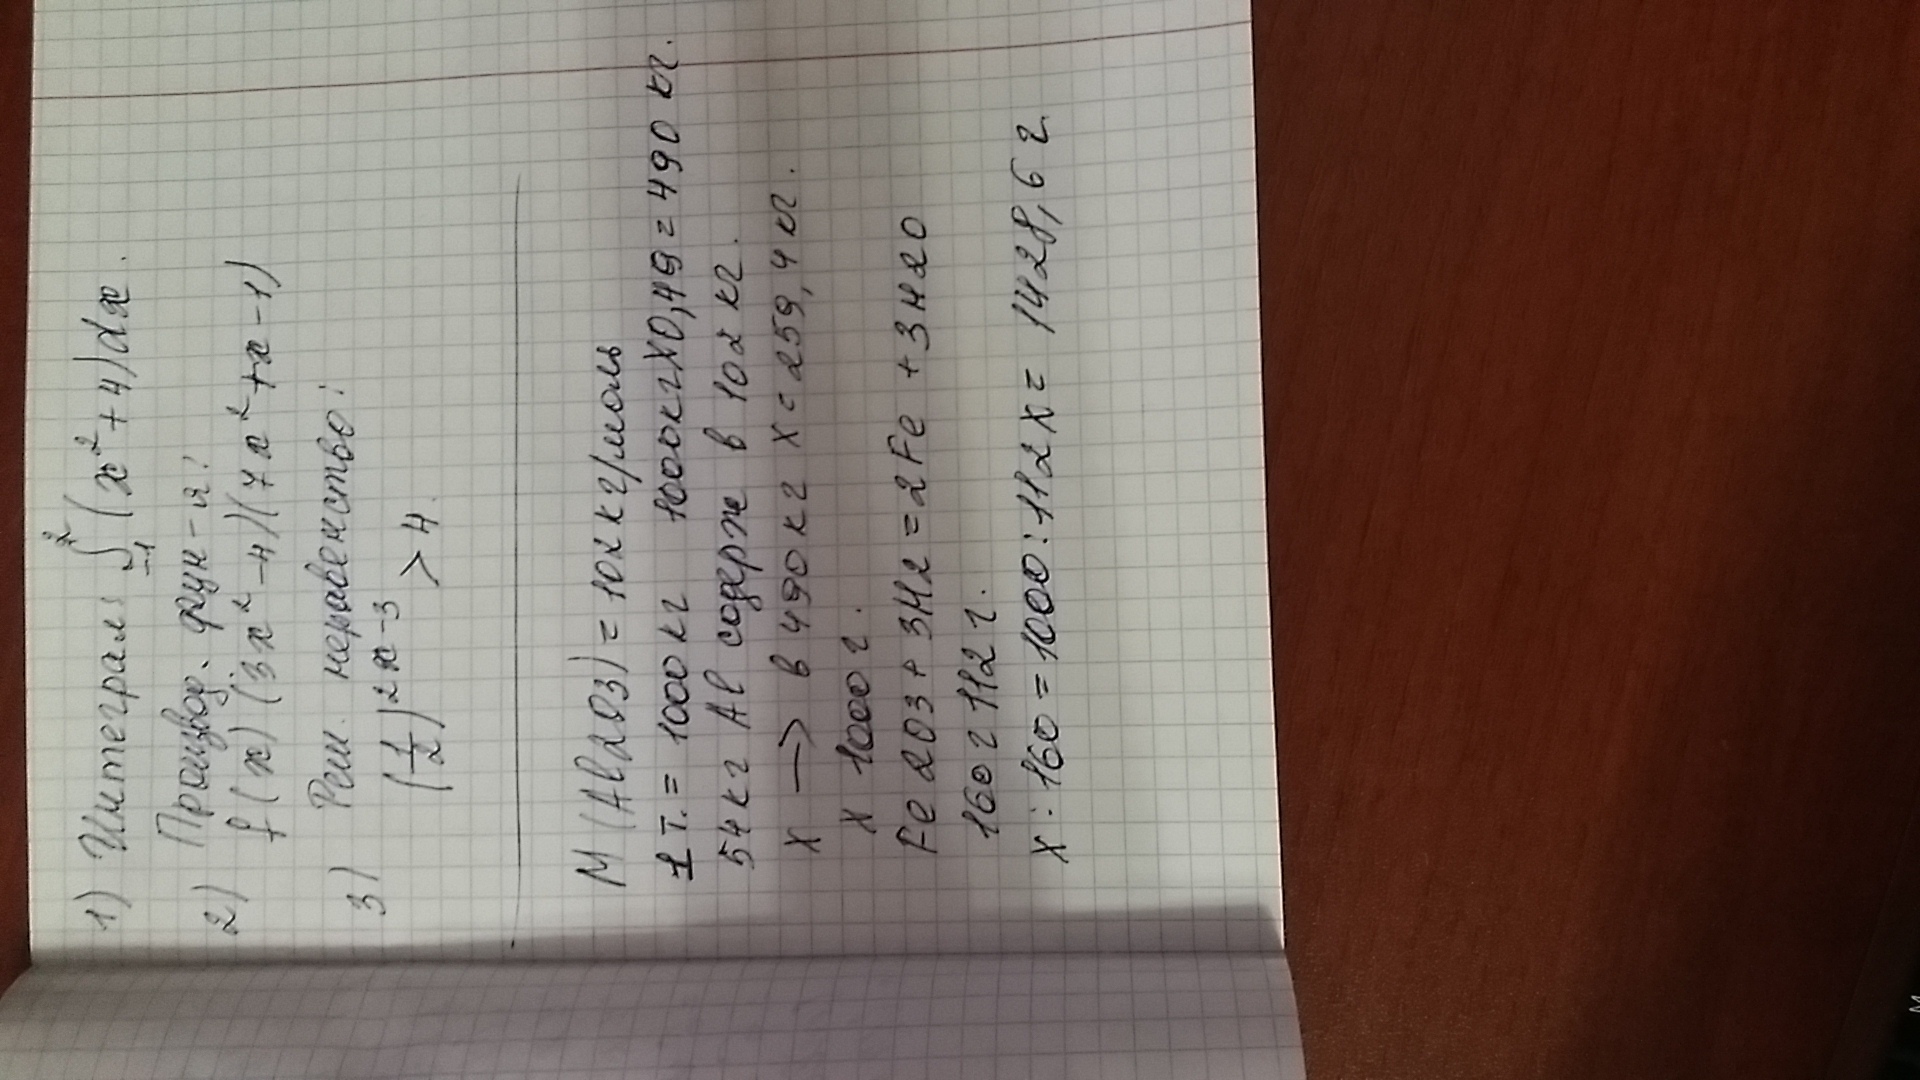 1) Интеграл: ∫₋₁² (x² + 4) dx.
2) Производ. фун-ия:
f(x) (3x² - 4)(7x² + x - 1)
3) Реш. неравенство:
(1/2)^2x-3 > 4.
М (Al2O3) = 102 кг/моль
1 т. = 1000 кг 1000кгX0,49 = 490 кг.
54 кг Al содерж в 102 кг.
X → в 490 кг X = 259,4 кг.
X 1000 г.
Fe2O3 + 3H2 = 2Fe + 3H2O
160 г 112 г.
X : 160 = 1000 : 112 X = 1428,6 г